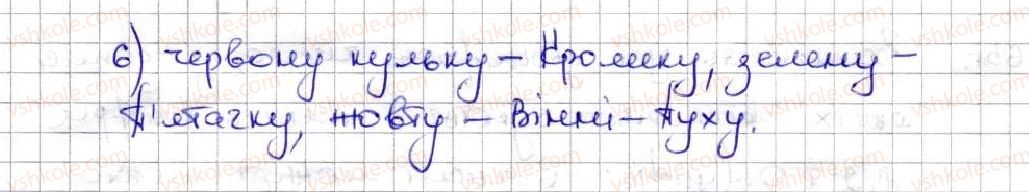 6) червону кульку – Кролику, зелену –
П'ятачку, жовту – Вінні – Пуху.